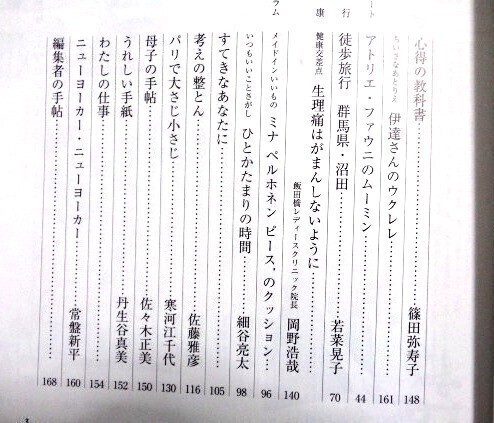 心得の教科書 篠田弥寿子 148
ちいさなあとりえ 伊達さんのウクレレ 161
ート アトリエ・ファウニのムーミン 44
行 徒歩旅行 群馬県・沼田 若菜晃子 70
康 健康交差点 生理痛はがまんしないように
飯田橋レディースクリニック院長 岡野浩哉 140
ラム メイドインいいもの ミナ ペルホネン ピース,のクッション 96
いつもいいことさがし ひとかたまりの時間 細谷亮太 98
すてきなあなたに 105
考えの整とん 佐藤雅彦 116
パリで大さじ小さじ 寒河江千代 130
母子の手帖 佐々木正美 150
うれしい手紙 丹生谷真美 152
わたしの仕事 154
ニューヨーカー・ニューヨーカー 常盤新平 160
編集者の手帖 168
3